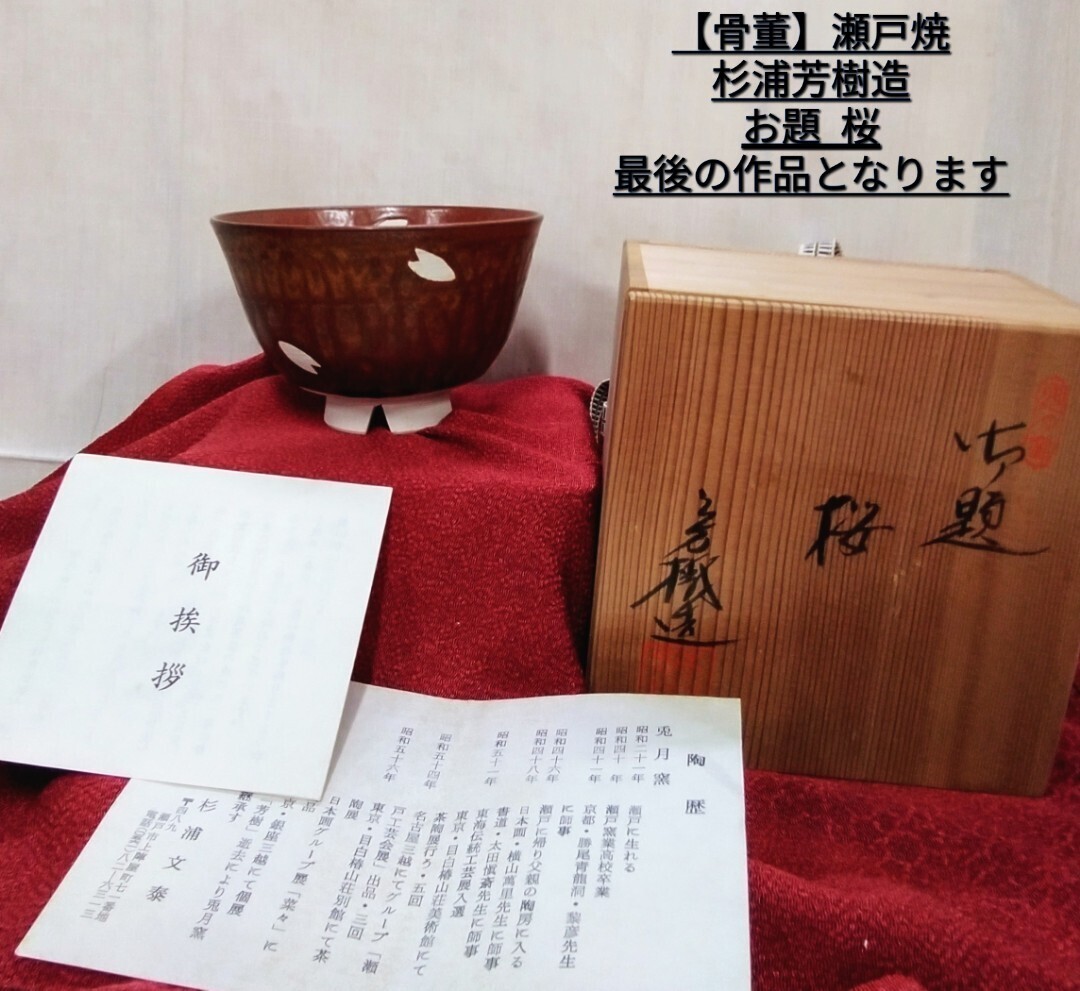 【骨董】瀬戸焼
杉浦芳樹造
お題 桜
最後の作品となります
御題
桜
芳樹造
御挨拶
陶歴
兎月窯
昭和二十一年 瀬戸に生れる
昭和四十年 瀬戸窯業高校卒業
昭和四十一年 京都・勝尾青龍洞・黎彦先生
に師事
昭和四十六年 瀬戸に帰り父親の陶房に入る
昭和四十八年 日本画・横山萬里先生に師事
書道・太田愼斎先生に師事
昭和五十一年 東海伝統工芸展入選
東京・目白椿山荘美術館にて
茶陶展行う・五回
昭和五十四年 名古屋三越にてグループ「瀬
戸工芸会展」出品・三回
昭和五十六年 東京・目白椿山荘別館にて茶
陶展
日本画グループ展「菜々」に
品
京・銀座三越にて個展
「芳樹」逝去により兎月窯
継承す
杉浦文泰
〒四八九
瀬戸市上陣屋町七一番地